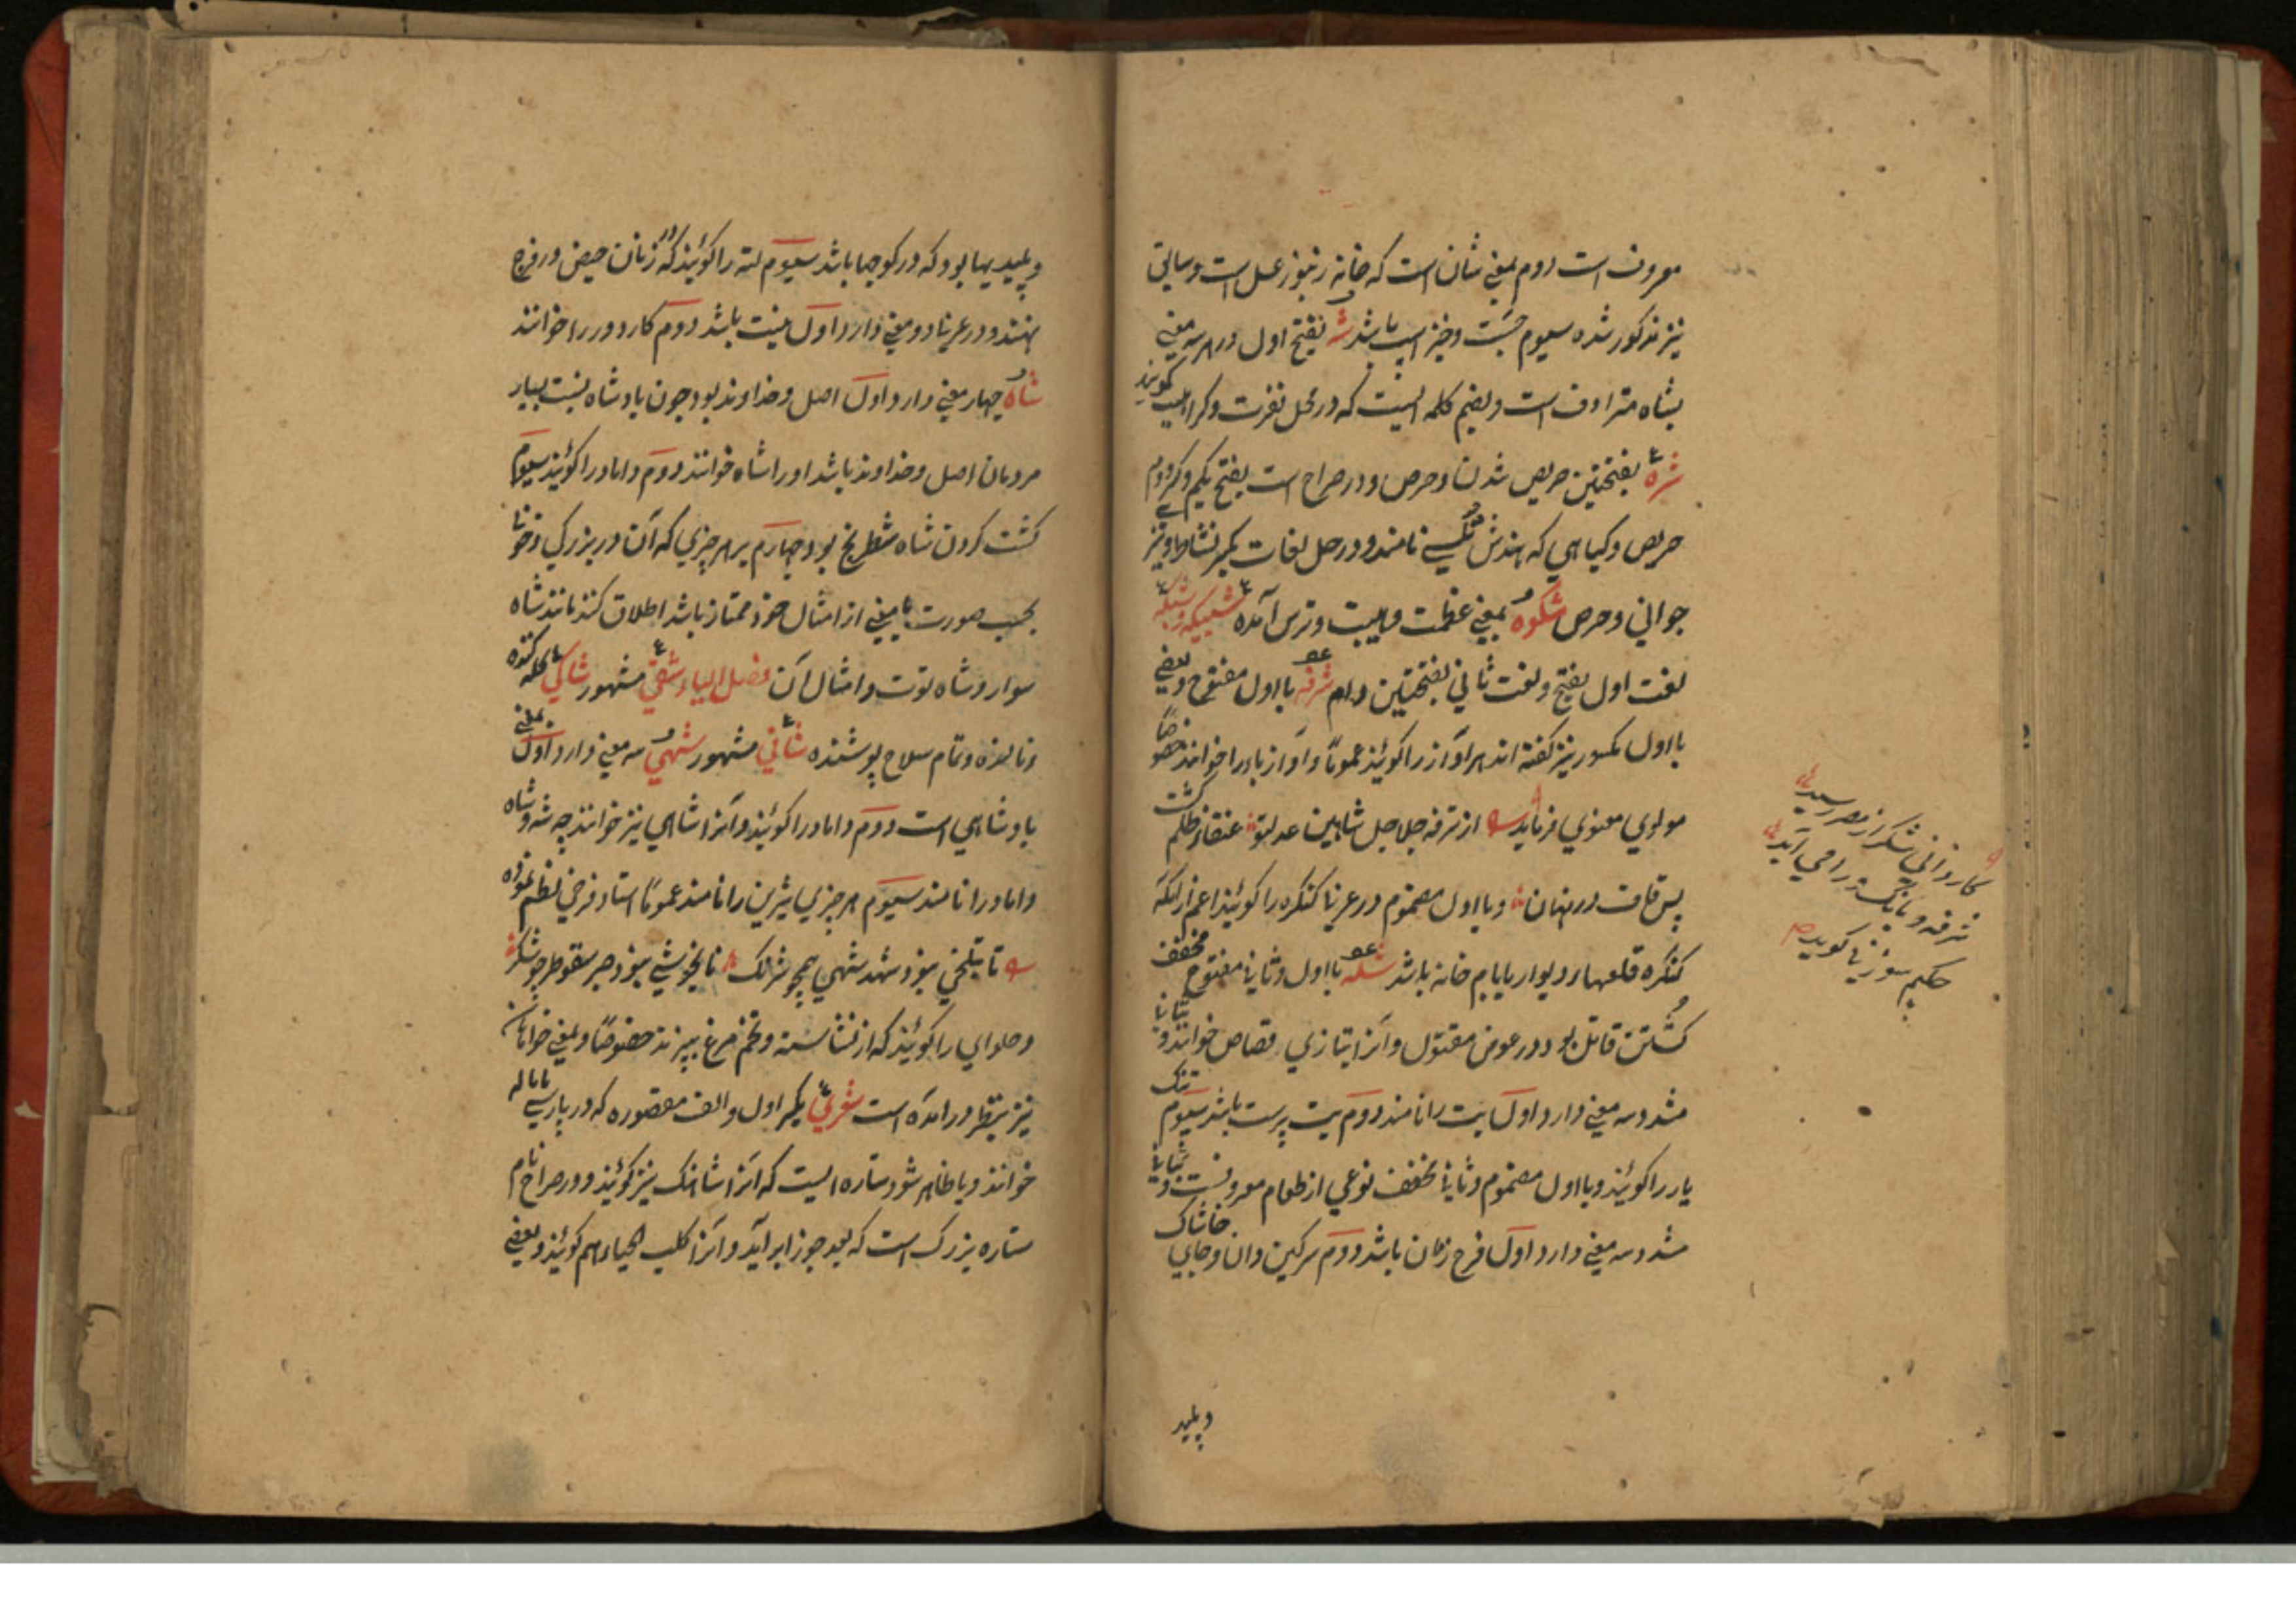 معروف است دوم بمعنی شان است که خانه زنبور عسل است و سیاتی
نیز مذکور شده سیوم جست و خیز اسپ باشد شه بفتح اول در هر سه معنی
بشاه مترادف است و بضم کلمه ایست که در محل نفرت و کراهیت گویند
شره بفتحتین حریص شدن و حرص و در صراح است بفتح یکم و کسر دوم
حریص و گیاهی که هندش نامند و در حل لغات بکسر نشاط و نیز
جوانی و حرص شکوه بمعنی عظمت و هیبت و ترس آمده شبیکه و شبکه
لغت اول بفتح و لغت ثانی بفتحتین دام شرفه با اول مفتوح و بعضی
با اول مکسور نیز گفته اند هر آواز را گویند عموماً و آواز پا را خوانند خصوصاً
مولوی معنوی فرماید از شرفه جلاجل شاهین عدل تو عنقاء ظلم گشت
پس قاف در نهان و با اول مضموم در عربی کنگره را گویند اعم از آنکه
کنگره قلعها و دیوار یا بام خانه باشد شله با اول و ثانی مفتوح مخفف
کُشتن قاتل بود در عوض مقتول و آنرا بتازی قصاص خوانند و بثانی
مشدد سه معنی دارد اول بت را نامند دوم بت پرست باشد سیوم
یار را گویند و با اول مضموم و ثانی مخفف نوعی از طعام معروفست و بثانی
مشدد سه معنی دارد اول فرج زنان باشد دوم سرگین دان و جای خاشاک
و پلید
کاروانی شکر از مصر رسید
شرفه و بانگ درا می آید
حکیم سوزنی گوید
و پلیدیها بود که در کوچها باشد سیوم لته را گویند که زنان حیض در فرج
نهند و در عربی دو معنی دارد اول نیت باشد دوم کار دور را خوانند
شاه چهار معنی دارد اول اصل و خداوند بود چون پادشاه نسبت بسایر
مردمان اصل و خداوند باشد او را شاه خوانند دوم داماد را گویند سیوم
کشت کردن شاه شطرنج بود چهارم بر هر چیزی که آن در بزرگی و خوبی
بحسب صورت یا معنی از امثال خود ممتاز باشد اطلاق کنند مانند شاه
سوار و شاه توت و امثال آن فصل الیاء شقی مشهور شاکی گله کننده
و نالنده و تمام سلاح پوشنده شانی مشهور شهی سه معنی دارد اول بمعنی
پادشاهی است دوم داماد را گویند و آنرا شاهی نیز خوانند چه شه و شاه
داماد را نامند سیوم هر چیزی شیرین را نامند عموماً استاد فرخی نظم نموده
تا بتلخی نبود شهد شهی همچو شرنگ تا بخوشی نبود صبر سقوطر چو شکر
و حلوای را گویند که از نشاسته و تخم مرغ بپزند خصوصاً و بمعنی خواهان
نیز بنظر در آمده است شعری بکسر اول و الف مقصوره که در پارسی باماله
خوانند و یا ظاهر شود ستاره ایست که آنرا شاهنگ نیز گویند و در صراح نام
ستاره بزرگ است که بعد جوزا برآید و آنرا کلب الجبار هم گویند و بعضی